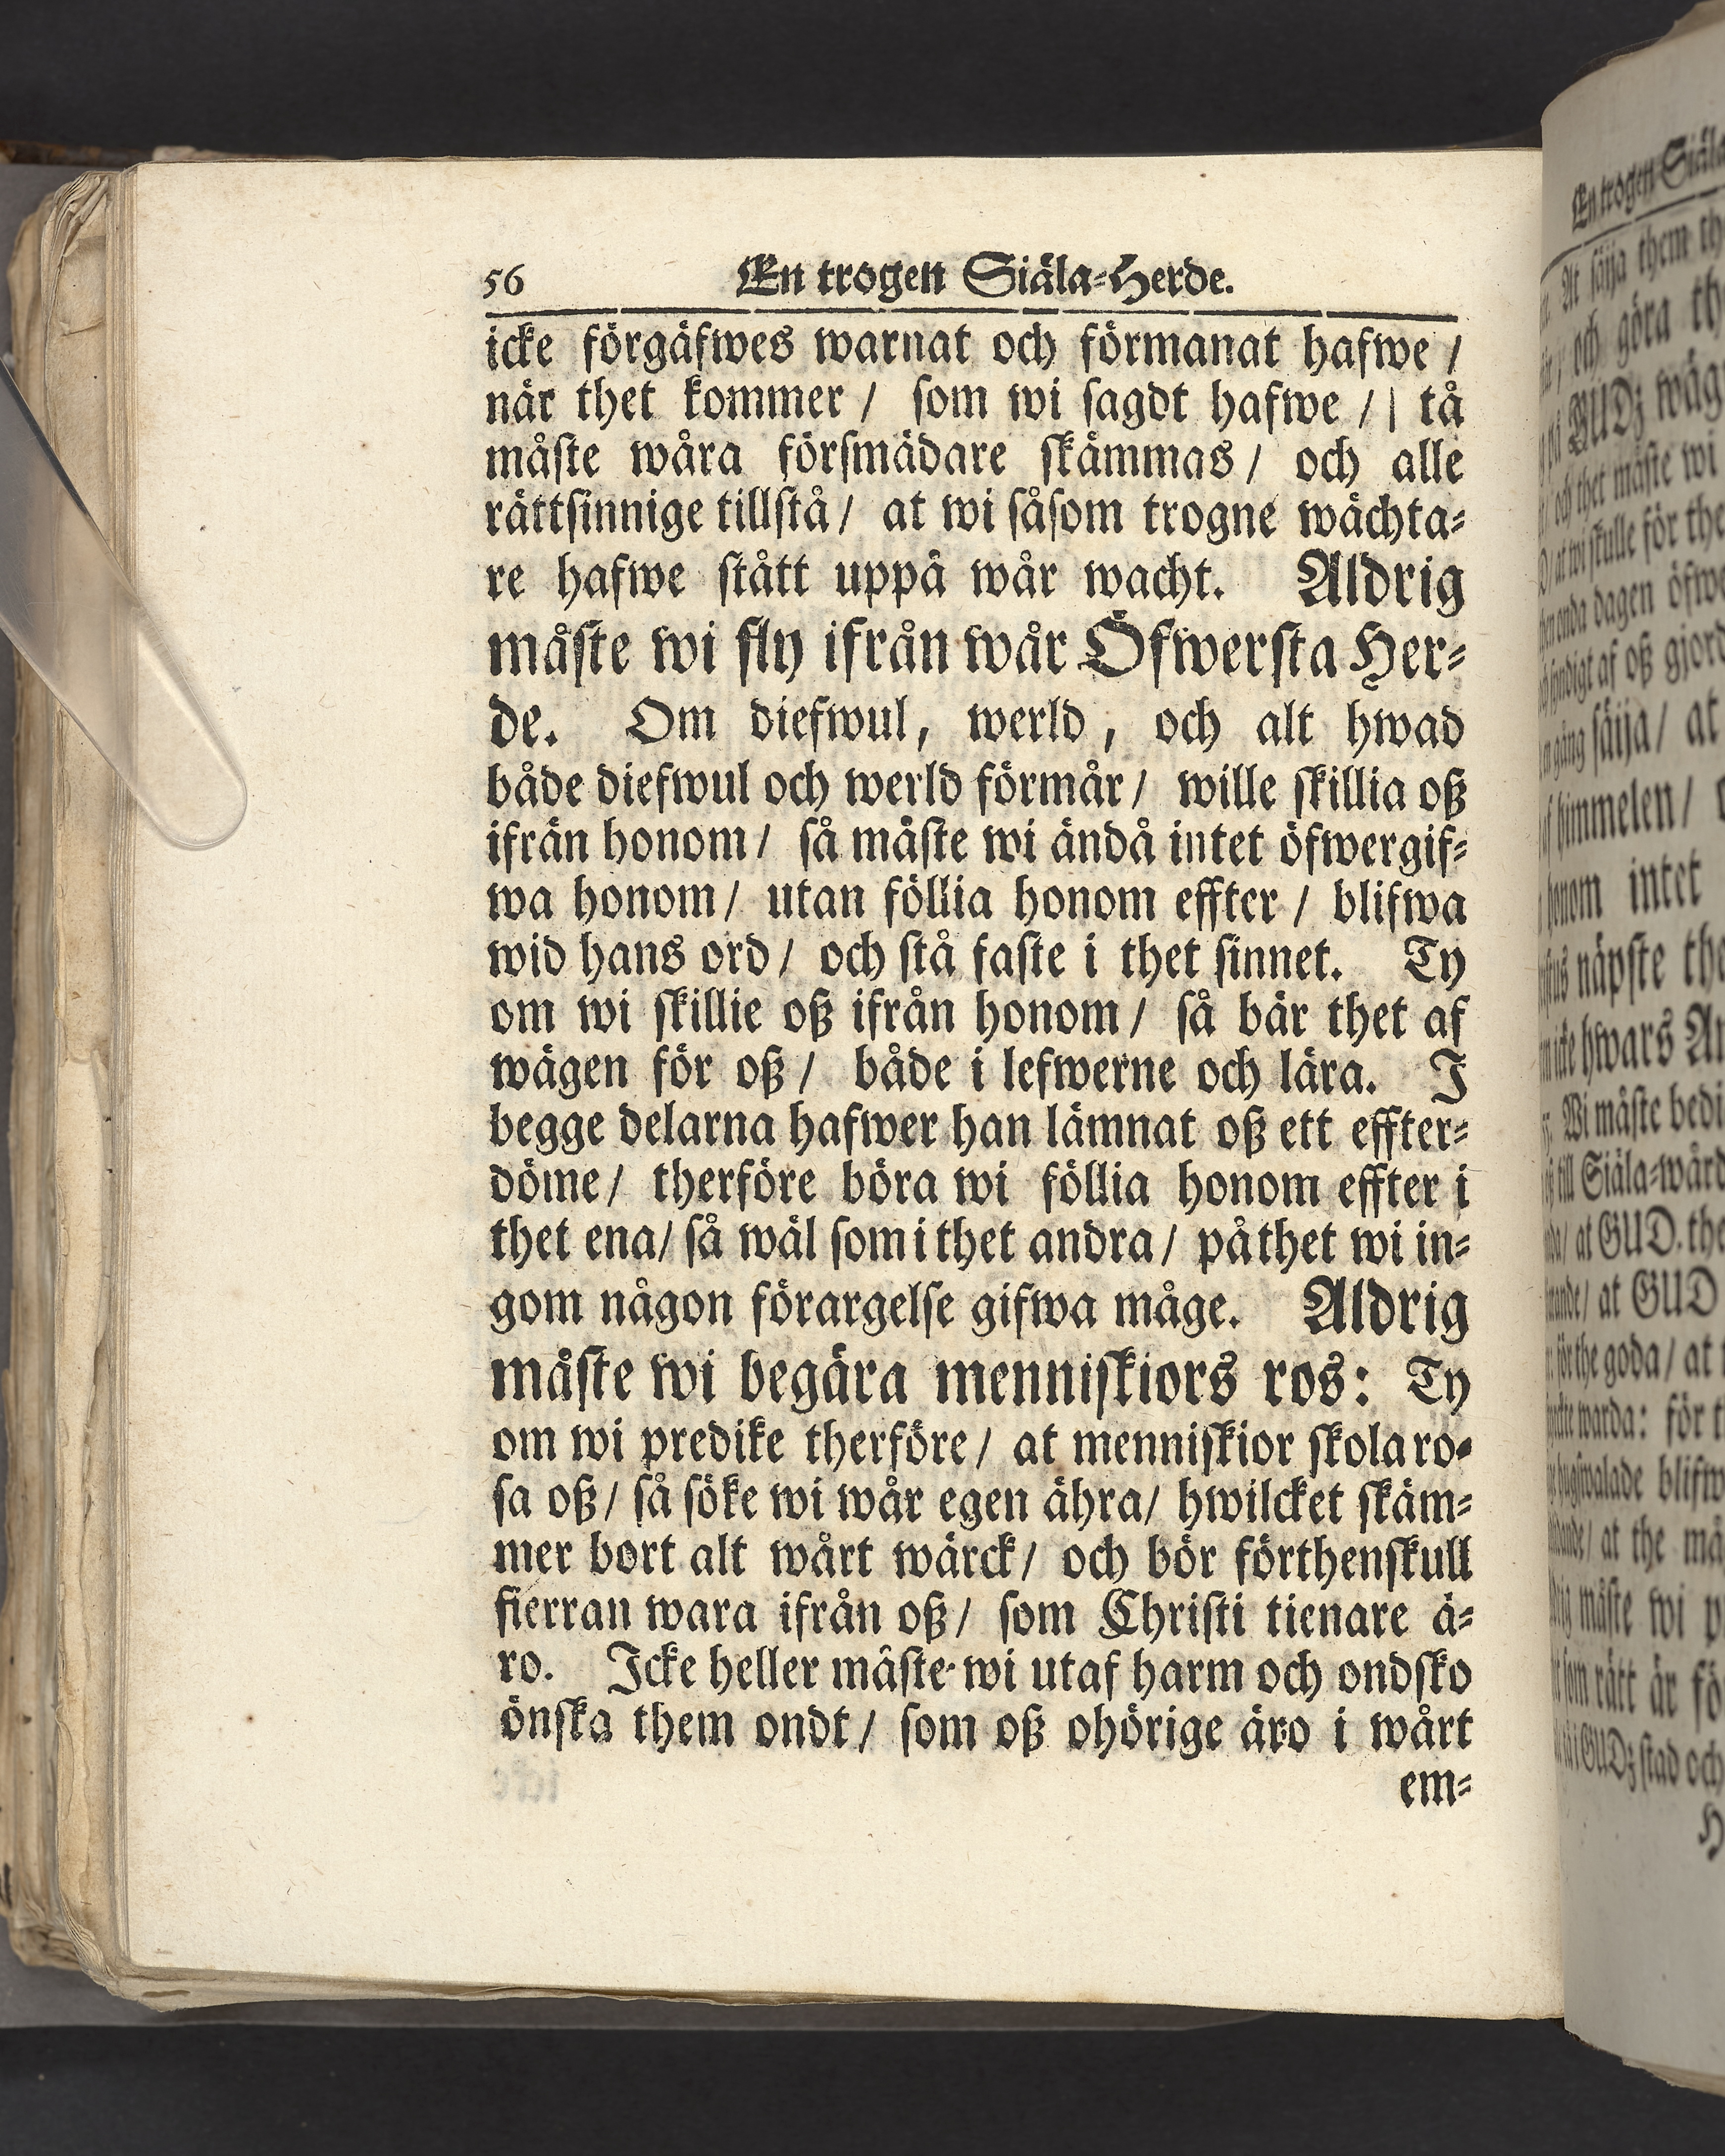 56 En trogen Siäla-Herde.
icke förgäfwes warnat och förmanat hafwe /
när thet kommer / som wi sagdt hafwe / | tå
måste wåra försmädare skämmas / och alle
rättsinnige tillstå / at wi såsom trogne wächta-
re hafwe stått uppå wår wacht. Aldrig
måste wi fly ifrån wår Öfwersta Her-
de. Om diefwul, werld, och alt hwad
både diefwul och werld förmår / wille skillia oß
ifrån honom / så måste wi ändå intet öfwergif-
wa honom / utan föllia honom effter / blifwa
wid hans ord / och stå faste i thet sinnet. Ty
om wi skillie oß ifrån honom / så bär thet af
wägen för oß / både i lefwerne och lära. I
begge delarna hafwer han lämnat oß ett effter-
döme / therföre böra wi föllia honom effter i
thet ena / så wäl som i thet andra / på thet wi in-
gom någon förargelse gifwa måge. Aldrig
måste wi begära menniskiors ros: Ty
om wi predike therföre / at menniskior skola ro-
sa oß / så söke wi wår egen ähra / hwilcket skäm-
mer bort alt wårt wärck / och bör förthenskull
fierran wara ifrån oß / som Christi tienare ä-
ro. Icke heller måste wi utaf harm och ondsko
önska them ondt / som oß ohörige äro i wårt
em-